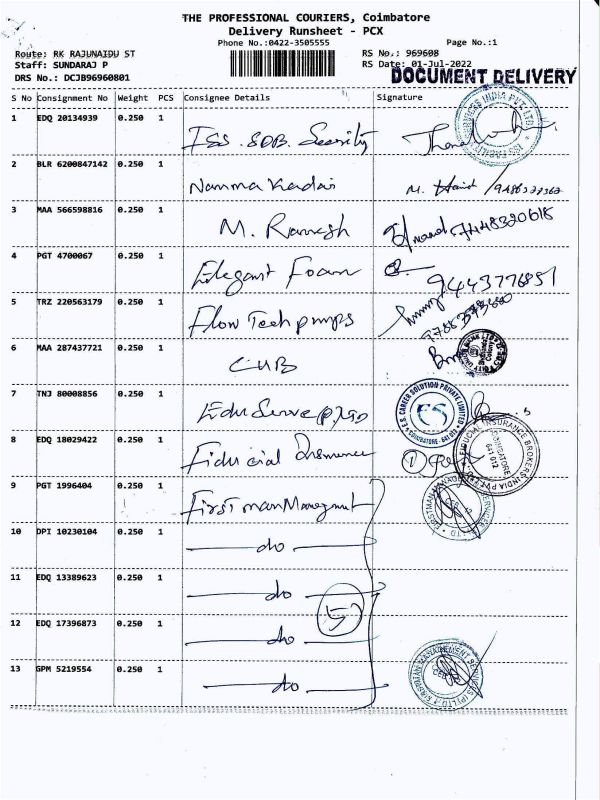 THE PROFESSIONAL COURIERS, Coimbatore
Delivery Runsheet - PCX
Phone No.:0422-3505555
Page No.:1
Route: RK RAJUNAIDU ST
RS No.: 969608
Staff: SUNDARAJ P
RS Date: 01-Jul-2022
DRS No.: DCJB96960801
DOCUMENT DELIVERY
S No Consignment No Weight PCS Consignee Details Signature
1 EDQ 20134939 0.250 1 ISS. SDB. Security
2 BLR 6200847142 0.250 1 Namma Kadai M.
3 MAA 566598816 0.250 1 M. Ramesh
4 PGT 4700067 0.250 1 Elegant Foam 9443776851
5 TRZ 220563179 0.250 1 Flow Tech pumps
6 MAA 287437721 0.250 1 CUB
7 TNJ 80008856 0.250 1 Edu Serve
8 EDQ 18029422 0.250 1 Fiducial Insurance 1
9 PGT 1996404 0.250 1 First man Managmnt
10 DPI 10230104 0.250 1 do
11 EDQ 13389623 0.250 1 do
5
12 EDQ 17396873 0.250 1 do
13 GPM 5219554 0.250 1 do